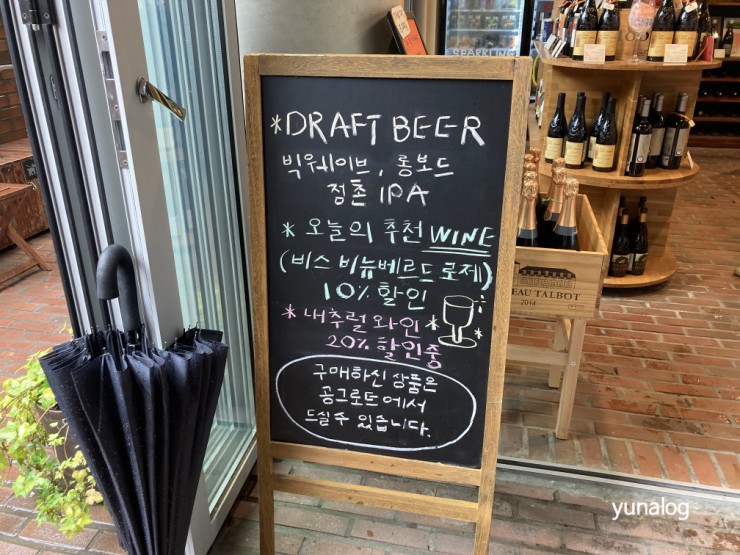 SPARKLING
*DRAFT BEER
빅웨이브, 롱보드
점촌 IPA
* 오늘의 추천 WINE
(비스 비뉴베르드 로제)
10% 할인
* 내추럴 와인 *
20% 할인중
구매하신 상품은
공그로드에서
드실수 있습니다.
EAU TALBOT
2014
yunalog